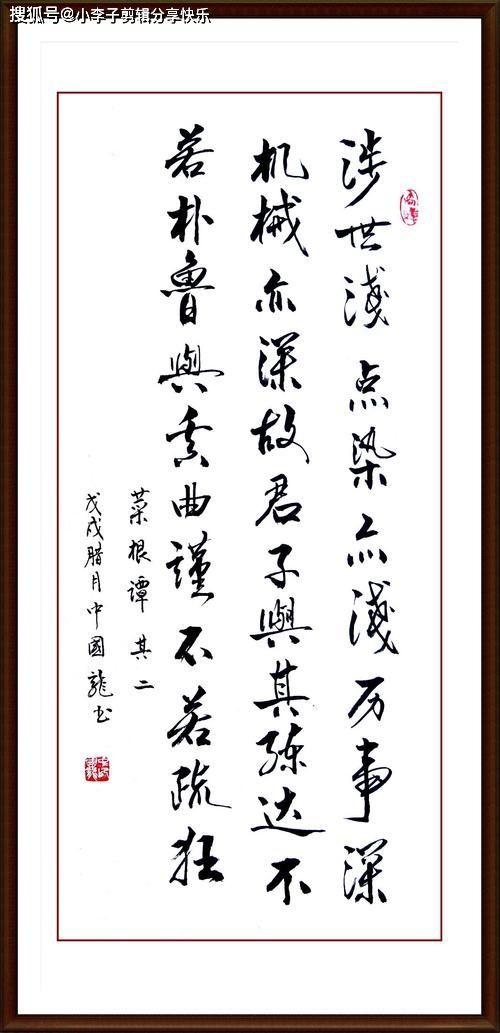 搜狐号@小李子剪辑分享快乐
涉世淺点染亦淺历事深
机械亦深故君子與其练达不
若朴魯與其曲謹不若疏狂
菜根譚 其二
戊戌腊月中國龍书